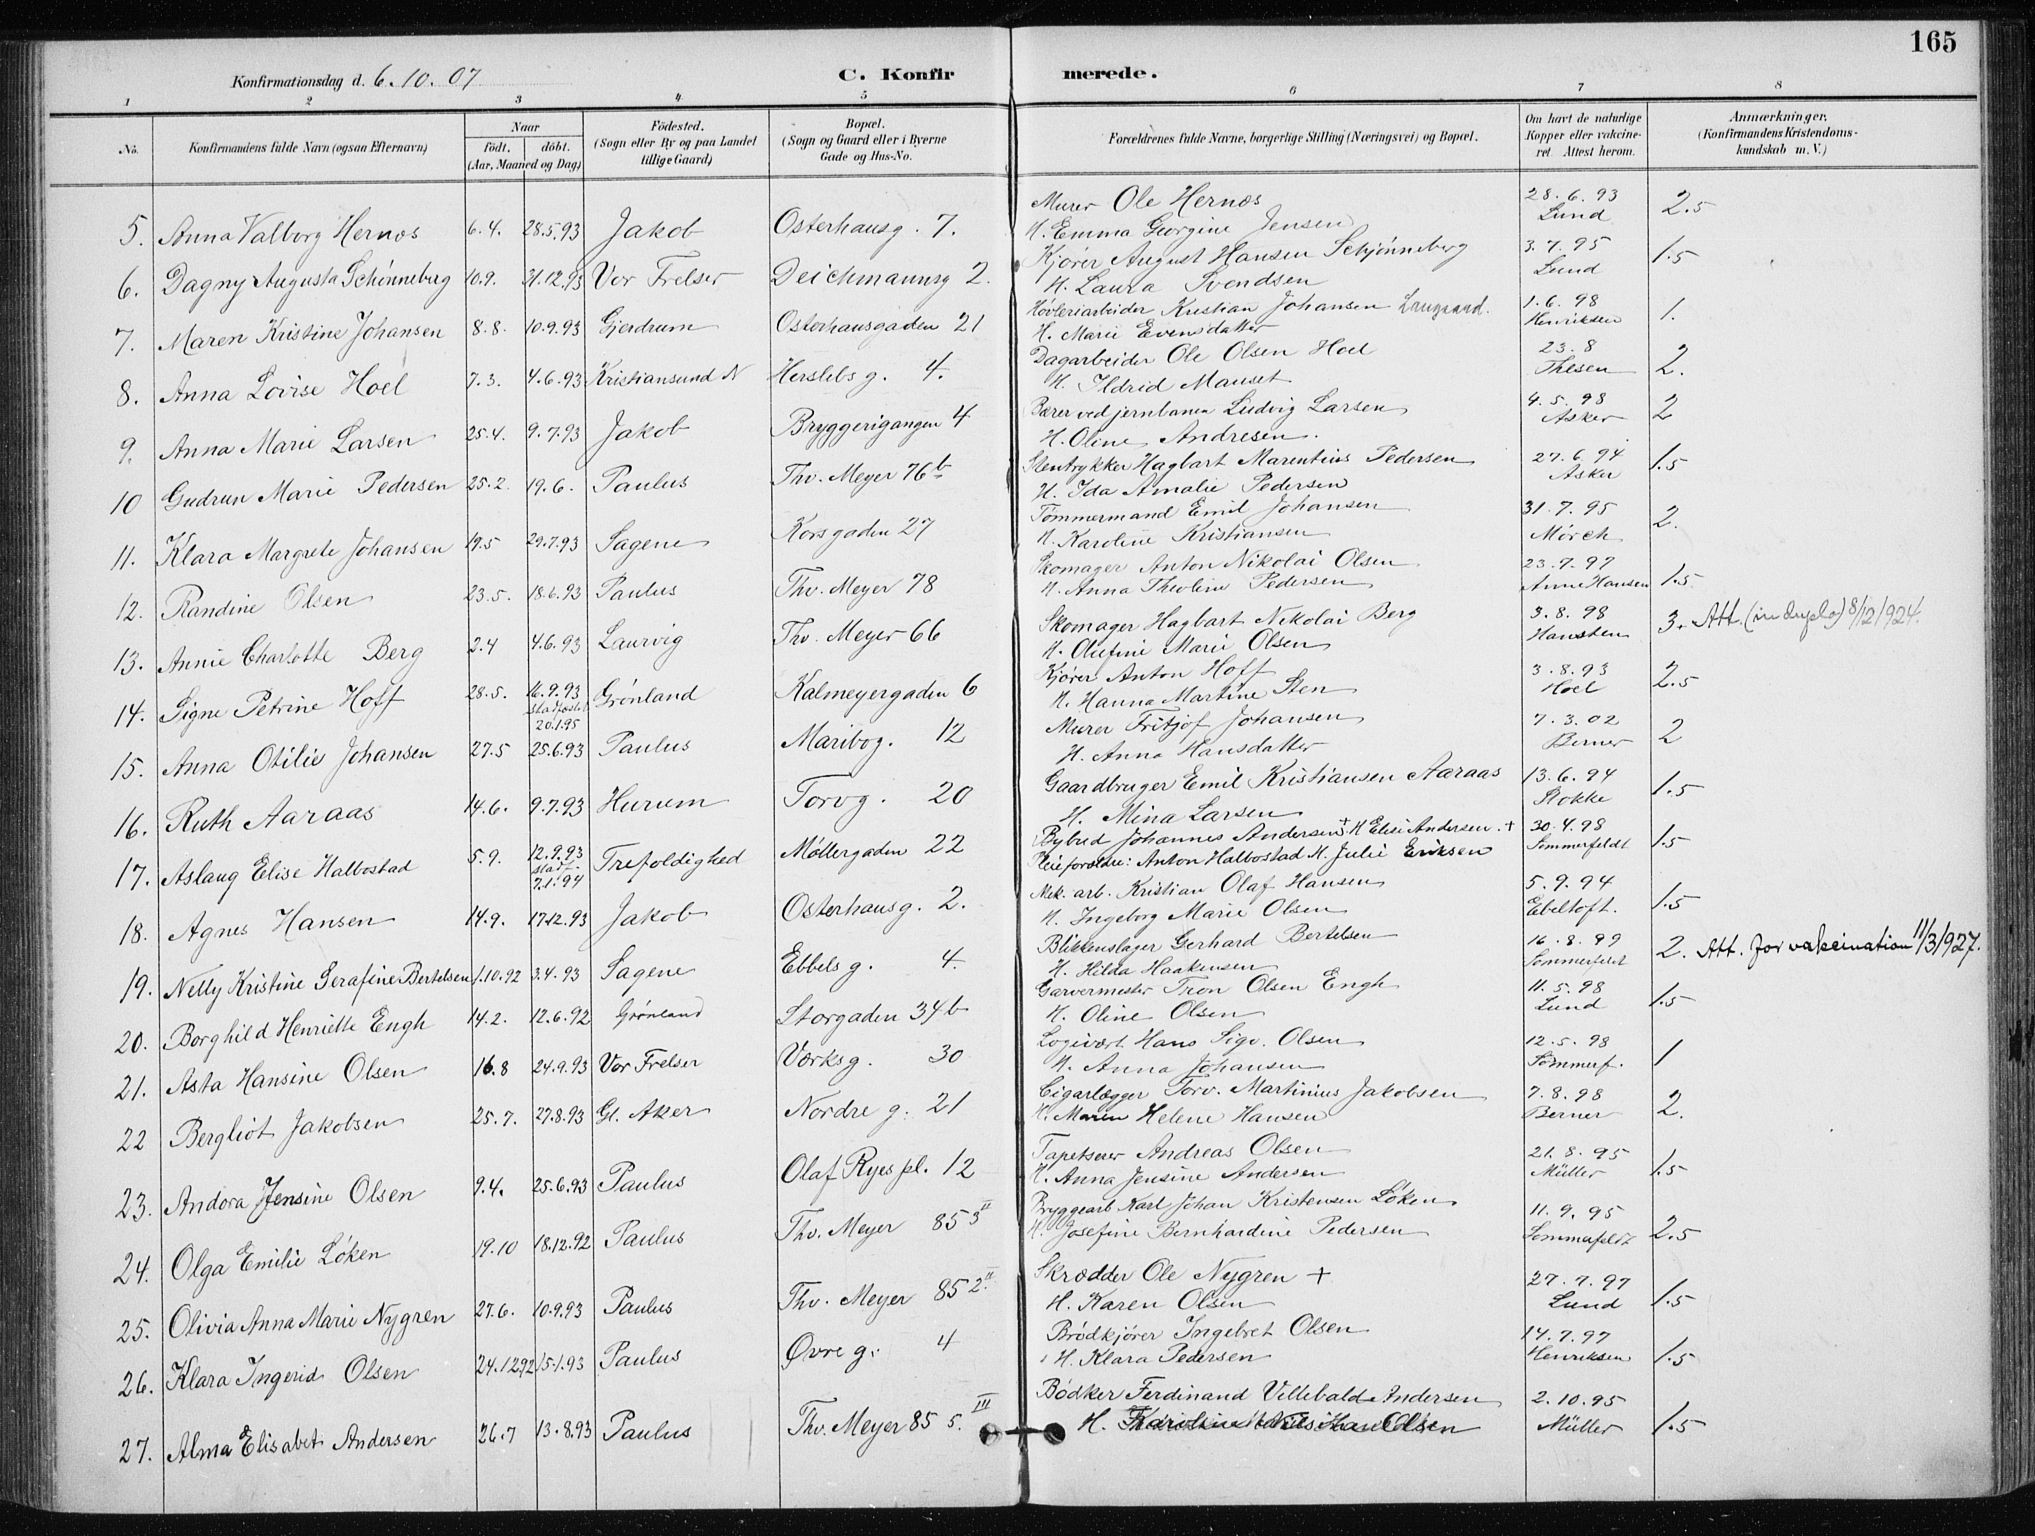 165
Konfirmationsdag d. 6.10.07
C. Konfirmerede.
1 2 3 4 5 6 7 8
No. Konfirmandens fulde Navn (ogsaa Efternavn) Naar født. døbt. (Aar, Maaned og Dag) Fødested. (Sogn eller By og paa Landet tillige Gaard) Bopæl. (Sogn og Gaard eller i Byerne Gade og Hus-No. Forældrenes fulde Navne, borgerlige Stilling (Næringsvei) og Bopæl. Om havt de naturlige Kopper eller vakcineret. Attest herom. Anmærkninger. (Konfirmandens Kristendomskundskab m. V.)
5. Anna Valborg Hernæs 6.4. 28.5.93 Jakob Osterhausg. 7. Murer Ole Hernæs 28.6.93 2.5
H. Emma Georgine Jensen Lund
6. Dagny Augusta Schönneberg 10.9. 31.12.93 Vor Frelser Deichmannsg 2. Kjører August Hansen Schjønneberg 3.7.95 1.5
H. Laura Svendsen Lund
7. Maren Kristine Johansen 8.8. 10.9.93 Gjerdrum Osterhausgaden 21 Høvleriarbeider Kristian Johansen 1.6.98 1.
H. Marie Evensdatter Henriksen
8. Anna Lovise Hoel 7.3. 4.6.93 Kristiansund N Herslebs g. 4. Dagarbeider Ole Olsen Hoel 23.8 2.
H. Ildrid Manset Thesen
9. Anna Marie Larsen 25.4. 9.7.93 Jakob Bryggerigangen 4 Bærer ved jernbanen Ludvig Larsen 4.5.98 2
H. Oline Andresen. Asker
10 Gudrun Marie Pedersen 25.2 19.6. Paulus Thv. Meyer 76b Stentrykker Hagbart Marentius Pedersen 27.6.94 1.5
H. Ida Amalie Pedersen Asker
11. Klara Margrete Johansen 19.5 29.7.93 Sagene Korsgaden 27 Tømmermand Emil Johansen 31.7.95 2.
H. Karoline Kristiansen Mørch
12. Randine Olsen 23.5. 18.6.93 Paulus Thv. Meyer 78 Skomager Anton Nikolai Olsen 23.7.97 1.5
H. Anna Theoline Pedersen Anne Hansen
13. Annie Charlotte Berg 2.4 4.6.93 Laurvig Thv. Meyer 66 Skomager Hagbart Nikolai Berg 3.8.98 3. Att. (in duplo) 8/12/924.
H. Olufine Marie Olsen Hansten
14. Signe Petrine Hoff 28.5. 16.9.93 20.1.95 Grønland Kalmeyergaden 6 Kjører Anton Hoff 3.8.93 2.5
H. Hanna Martine Sten Hoel
15. Anna Otilie Johansen 27.5 25.6.93 Paulus Maribog. 12 Murer Fritjof Johansen 7.3.02 2
H. Anna Hansdatter Berner
16. Ruth Aaraas 14.6. 9.7.93 Hurum Torvg. 20 Gaardbruger Emil Kristiansen Aaraas 13.6.94 1.5
H. Mina Larsen Stokke
17. Aslaug Elise Halbostad 5.9. 12.9.93 stadf. 7.1.94 Trefoldighed Møllergaden 22 Bybud Johannes Andersen + H Elise Andersen. + 30.4.98 1.5
Pleieforældre: Anton Halbostad H. Julie Eriksen Sommerfeldt
18. Agnes Hansen 14.9. 17.12.93 Jakob Osterhausg. 2. Mek. arb. Kristian Olaf Hansen 5.9.94 1.5
H. Ingeborg Marie Olsen Ebeltoft.
19. Nelly Kristine Serafine Bertelsen 1.10.92 3.4.93 Sagene Ebbels g. 4. Blikkenslager Gerhard Bertelsen 16.8.99 2. Att. for vakcination 11/3/927.
H. Hilda Haakensen Sommerfeldt
20. Borghild Henriette Engh 14.2. 12.6.92 Grønland Storgaden 34b Garvermester Tron Olsen Engh 11.5.98 1.5
H. Oline Olsen Lund
21. Asta Hansine Olsen 16.8 24.9.93 Vor Frelser Værksg. 30 Logivært Hans Sigv. Olsen 12.5.98 1
H. Anna Johansen Sommerf.
22 Bergliot Jakobsen 25.7. 27.8.93 Gl. Aker Nordre g. 21 Cigarlægger Torv. Martinius Jakobsen 7.8.98 2.
H. Maren Helene Hansen Berner
23. Andora Jensine Olsen 9.4. 25.6.93 Paulus Olaf Ryes pl. 12 Tapetserer Andreas Olsen 21.8.95 1.5
H. Anna Jensine Andersen Müller
24. Olga Emilie Løken 19.10 18.12.92 Paulus Thv. Meyer 85 3 II Bryggearb Karl Johan Kristensen Løken 11.9.95 2.5
H. Josefine Bernhardine Pedersen Sommerfeldt
25. Olivia Anna Marie Nygren 27.6. 10.9.93 Paulus Thv. Meyer 85 2. II Skrædder Ole Nygren + 27.7.97 1.5
H. Karen Olsen Lund
26. Klara Ingerid Olsen 24.12.92 15.1.93 Paulus Øvre g. 4 Brødkjører Ingebret Olsen 14.7.97 1.5
H. Klara Pedersen Henriksen
27. Alma Elisabet Andersen 26.7 13.8.93 Paulus Thv. Meyer 85 5. III Bødker Ferdinand Villebald Andersen 2.10.95 1.5
H. Olsen Müller